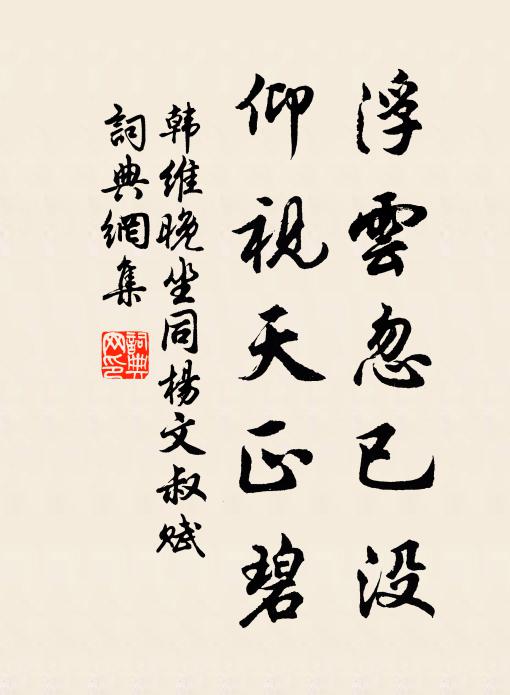 浮雲忽已没
仰視天正碧
韩维晚坐同楊文叔赋
詞典網集
詞典网印